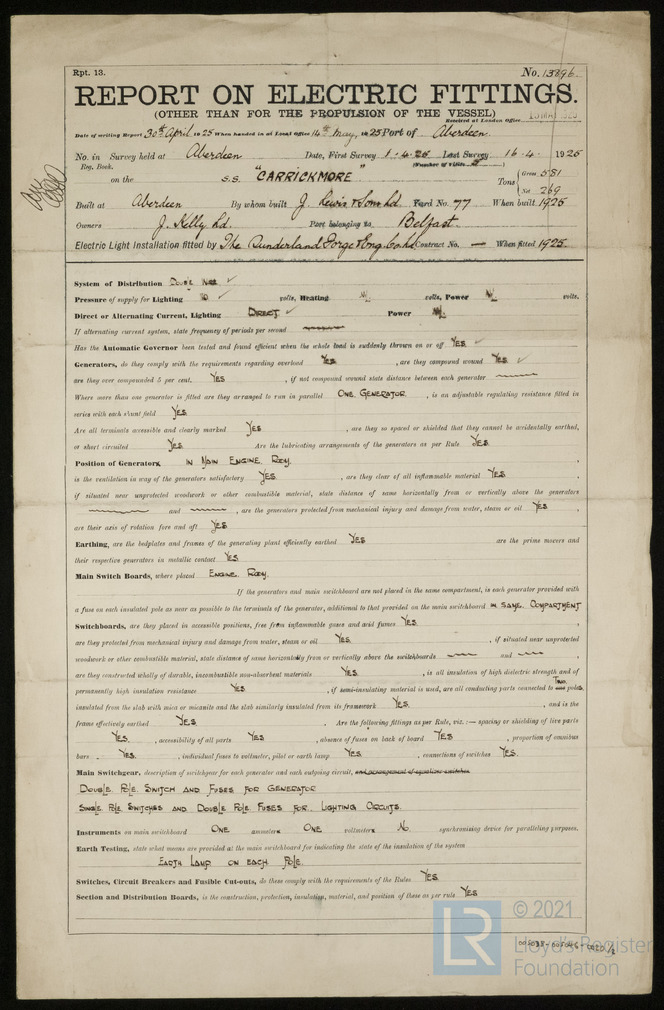 Rpt. 13.
No. 13896.
REPORT ON ELECTRIC FITTINGS.
(OTHER THAN FOR THE PROPULSION OF THE VESSEL)
Received at London Office
Date of writing Report 30th April 1925 When handed in at Local Office 14th May, 1925 Port of Aberdeen.
No. in Survey held at Aberdeen Date, First Survey 1-4-25 Last Survey 16-4- 1925
Reg. Book. (Number of visits
on the S.S. "CARRICKMORE" Tons { Gross 581
Net 269
Built at Aberdeen By whom built J. Lewis & Sons Ld. Yard No. 77 When built 1925
Owners J. Kelly Ld. Port belonging to Belfast.
Electric Light Installation fitted by The Sunderland Forge & Eng. Co. Ld. Contract No. — When fitted 1925.
System of Distribution Double Wire
Pressure of supply for Lighting volts, Heating volts, Power volts.
Direct or Alternating Current, Lighting Direct Power
If alternating current system, state frequency of periods per second
Has the Automatic Governor been tested and found efficient when the whole load is suddenly thrown on or off Yes
Generators, do they comply with the requirements regarding overload Yes , are they compound wound Yes
are they over compounded 5 per cent. Yes , if not compound wound state distance between each generator
Where more than one generator is fitted are they arranged to run in parallel One Generator , is an adjustable regulating resistance fitted in
series with each shunt field Yes
Are all terminals accessible and clearly marked Yes , are they so spaced or shielded that they cannot be accidentally earthed,
or short circuited Yes Are the lubricating arrangements of the generators as per Rule Yes.
Position of Generators in Main Engine Room.
is the ventilation in way of the generators satisfactory Yes , are they clear of all inflammable material Yes ,
if situated near unprotected woodwork or other combustible material, state distance of same horizontally from or vertically above the generators
and , are the generators protected from mechanical injury and damage from water, steam or oil Yes ,
are their axis of rotation fore and aft Yes
Earthing, are the bedplates and frames of the generating plant efficiently earthed Yes are the prime movers and
their respective generators in metallic contact Yes
Main Switch Boards, where placed Engine Room.
If the generators and main switchboard are not placed in the same compartment, is each generator provided with
a fuse on each insulated pole as near as possible to the terminals of the generator, additional to that provided on the main switchboard in same compartment
Switchboards, are they placed in accessible positions, free from inflammable gases and acid fumes Yes ,
are they protected from mechanical injury and damage from water, steam or oil Yes , if situated near unprotected
woodwork or other combustible material, state distance of same horizontally from or vertically above the switchboards and ,
are they constructed wholly of durable, incombustible non-absorbent materials Yes , is all insulation of high dielectric strength and of
permanently high insulation resistance Yes , if semi-insulating material is used, are all conducting parts connected to Two poles
insulated from the slab with mica or micanite and the slab similarly insulated from its framework Yes , and is the
frame effectively earthed Yes . Are the following fittings as per Rule, viz.:— spacing or shielding of live parts
Yes , accessibility of all parts Yes , absence of fuses on back of board Yes , proportion of omnibus
bars Yes , individual fuses to voltmeter, pilot or earth lamp Yes , connections of switches Yes.
Main Switchgear, description of switchgear for each generator and each outgoing circuit, and arrangement of equaliser switches
Double Pole Switch and Fuses for Generator
Single Pole Switches and Double Pole Fuses for Lighting Circuits.
Instruments on main switchboard One ammeters One voltmeters No synchronising device for paralleling purposes.
Earth Testing, state what means are provided at the main switchboard for indicating the state of the insulation of the system
Earth Lamp on each Pole.
Switches, Circuit Breakers and Fusible Cut-outs, do these comply with the requirements of the Rules Yes
Section and Distribution Boards, is the construction, protection, insulation, material, and position of these as per rule Yes
© 2021
Lloyd's Register
Foundation
LR